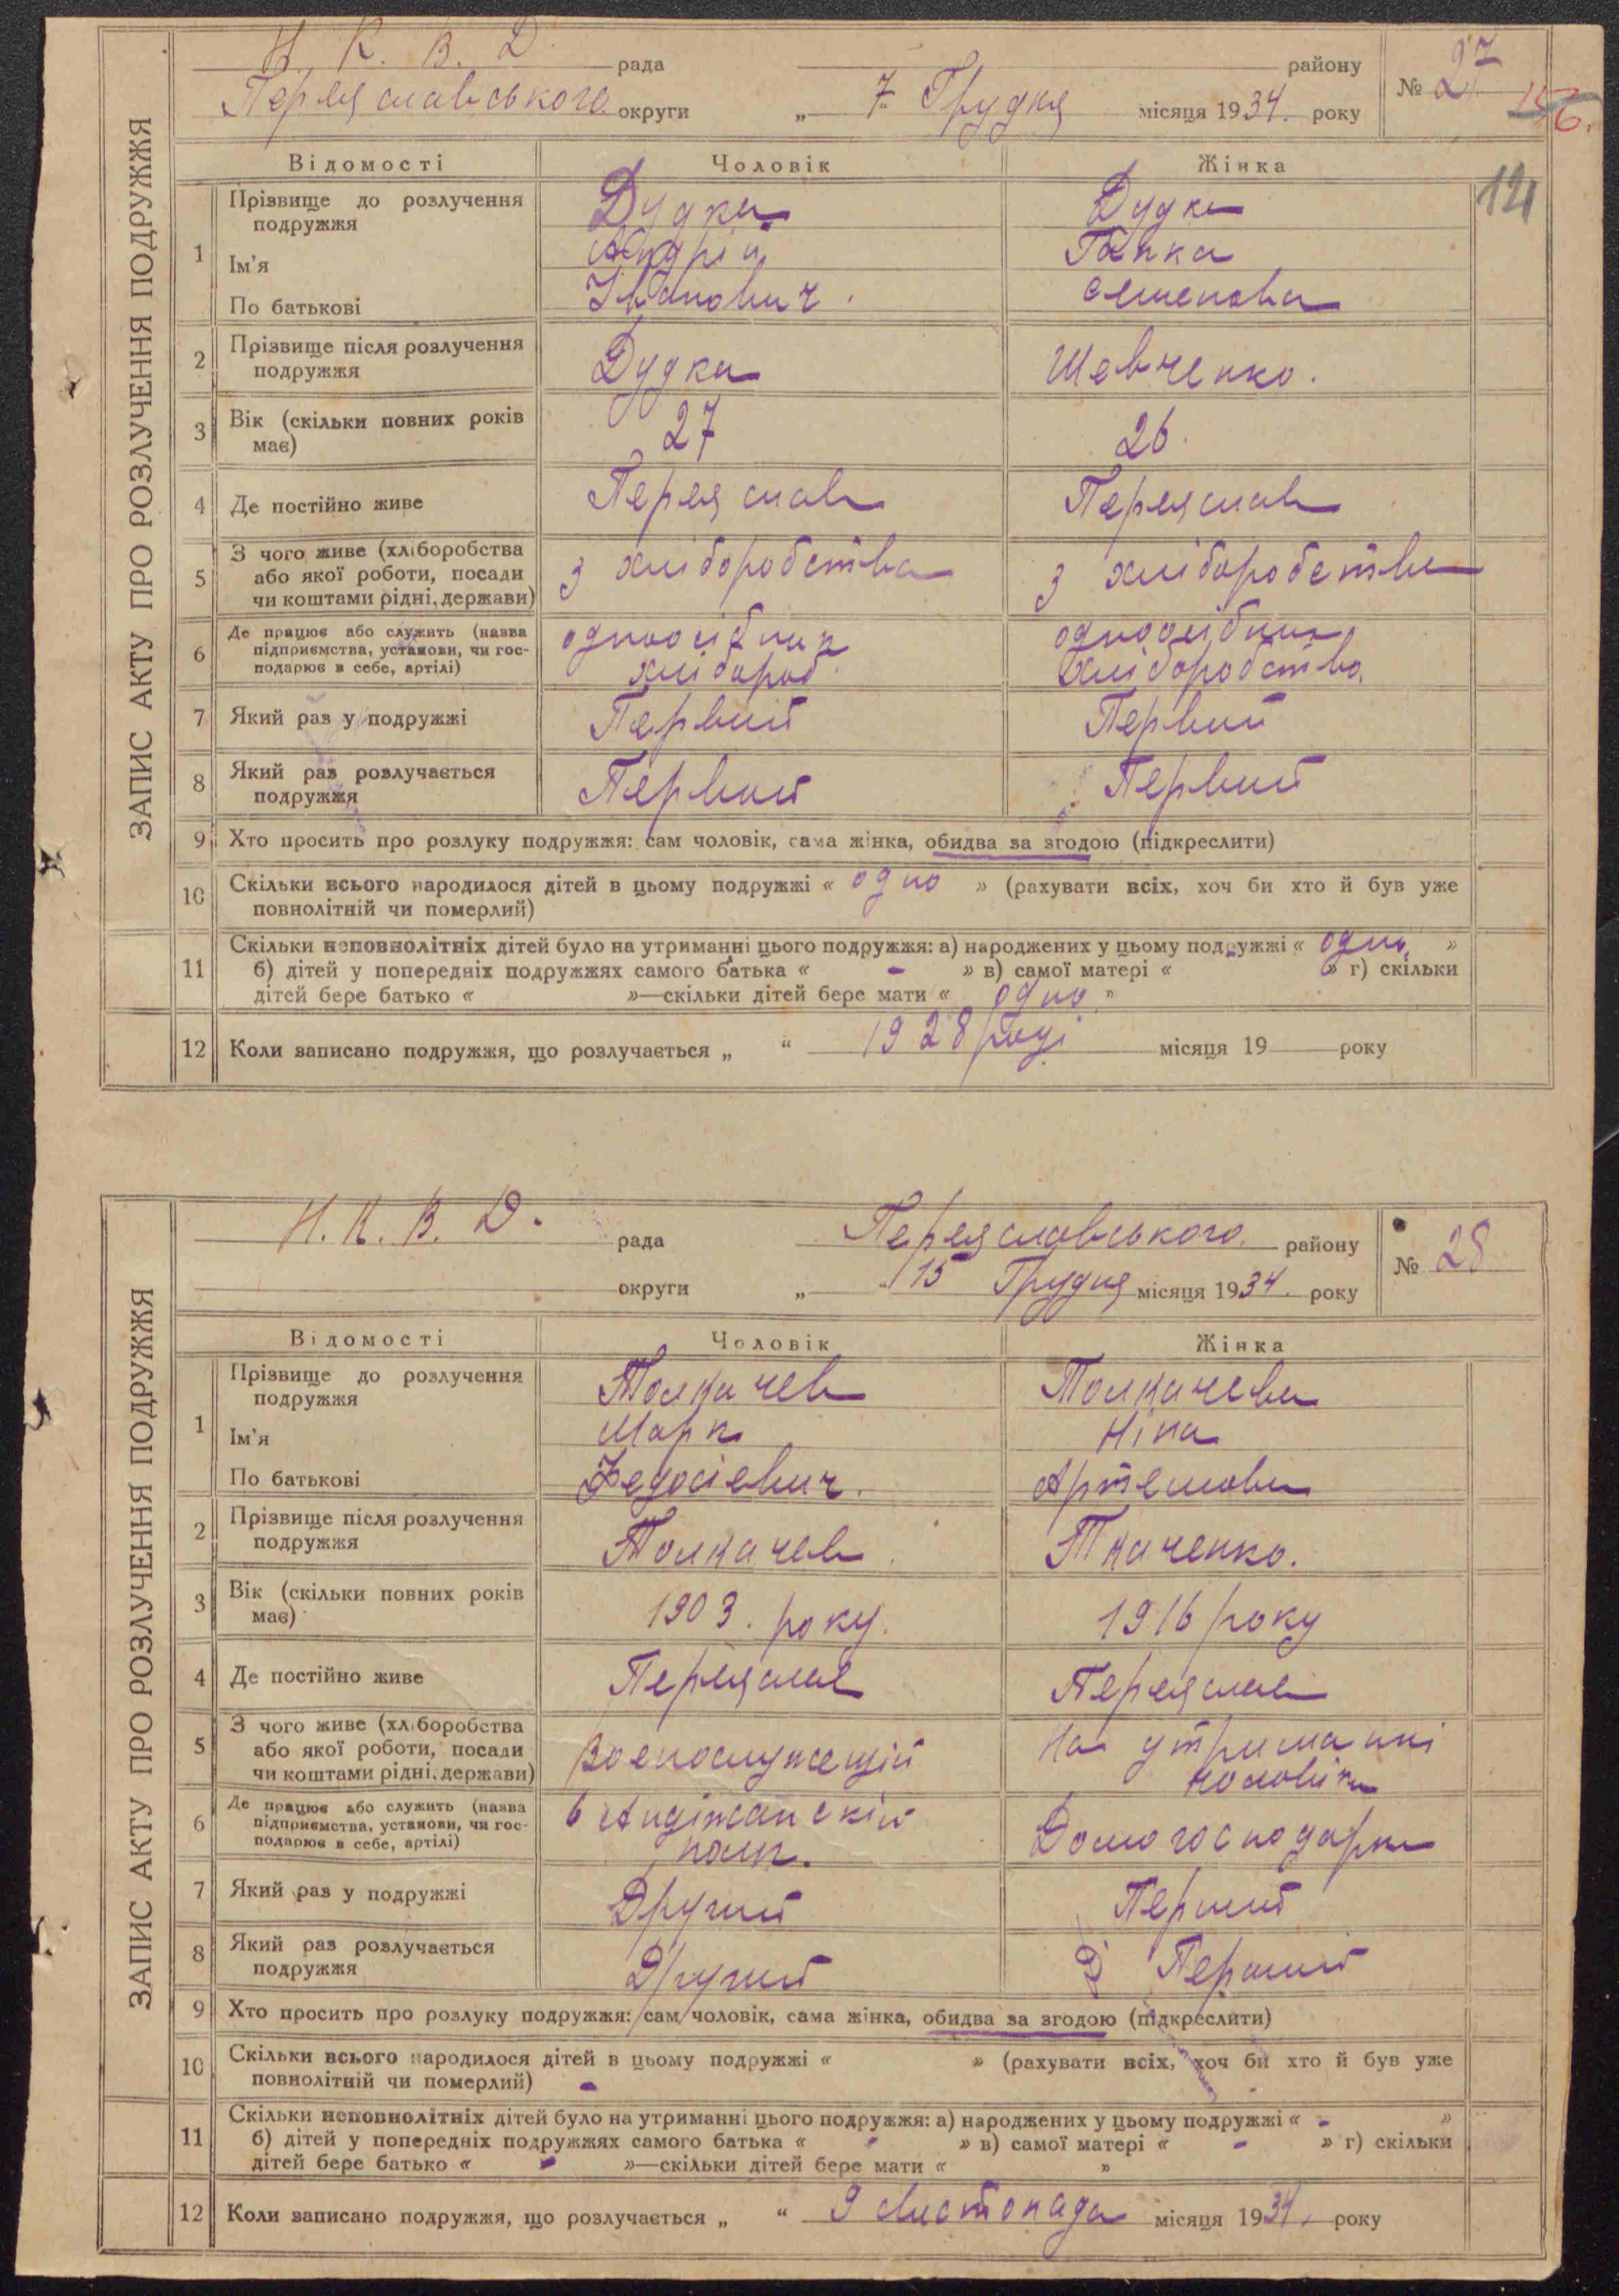 Н. К. В. Д. рада району № 27
156.
Переяславського округи „ 7 " Грудня місяця 1934. року
121
ЗАПИС АКТУ ПРО РОЗЛУЧЕННЯ ПОДРУЖЖЯ
Відомості Чоловік Жінка
1 Прізвище до розлучення подружжя Дудка Дудка
Ім'я Андрій Ганка
По батькові Іванович. Семенова
2 Прізвище після розлучення подружжя Дудка Шевченко.
3 Вік (скільки повних років має) 27 26.
4 Де постійно живе Переяслав Переяслав
5 З чого живе (хліборобства або якої роботи, посади чи коштами рідні, держави) з хліборобства з хліборобства
6 Де працює або служить (назва підприємства, установи, чи господарює в себе, артілі) одноосібник хлібороб одноосібник хліборобство.
7 Який раз у подружжі Первий Первий
8 Який раз розлучається подружжя Первий Первий
9 Хто просить про розлуку подружжя: сам чоловік, сама жінка, обидва за згодою (підкреслити)
10 Скільки всього народилося дітей в цьому подружжі « одно » (рахувати всіх, хоч би хто й був уже
повнолітній чи померлий)
11 Скільки неповнолітніх дітей було на утриманні цього подружжя: а) народжених у цьому подружжі « одно »
б) дітей у попередніх подружжях самого батька « - » в) самої матері « » г) скільки
дітей бере батько « »—скільки дітей бере мати « одно »
12 Коли записано подружжя, що розлучається „ “ 1928 році місяця 19 року
Н. К. В. Д. рада Переяславського району № 28
округи „ " 15 Грудня місяця 1934. року
ЗАПИС АКТУ ПРО РОЗЛУЧЕННЯ ПОДРУЖЖЯ
Відомості Чоловік Жінка
1 Прізвище до розлучення подружжя Толкачев Толкачева
Ім'я Марк Ніна
По батькові Федосієвич. Артемова
2 Прізвище після розлучення подружжя Толкачев. Ткаченко.
3 Вік (скільки повних років має) 1903. року. 1916 року
4 Де постійно живе Переяслав Переяслав
5 З чого живе (хліборобства або якої роботи, посади чи коштами рідні, держави) Воєнослужещій На утриманні чоловіка
6 Де працює або служить (назва підприємства, установи, чи господарює в себе, артілі) в Андіжанскій полк. Домогосподарка
7 Який раз у подружжі Другий Перший
8 Який раз розлучається подружжя Другий Перший
9 Хто просить про розлуку подружжя: сам чоловік, сама жінка, обидва за згодою (підкреслити)
10 Скільки всього народилося дітей в цьому подружжі « » (рахувати всіх, хоч би хто й був уже
повнолітній чи померлий) -
11 Скільки неповнолітніх дітей було на утриманні цього подружжя: а) народжених у цьому подружжі « - »
б) дітей у попередніх подружжях самого батька « - » в) самої матері « - » г) скільки
дітей бере батько « - »—скільки дітей бере мати « »
12 Коли записано подружжя, що розлучається „ “ 9 Листопада місяця 1934. року